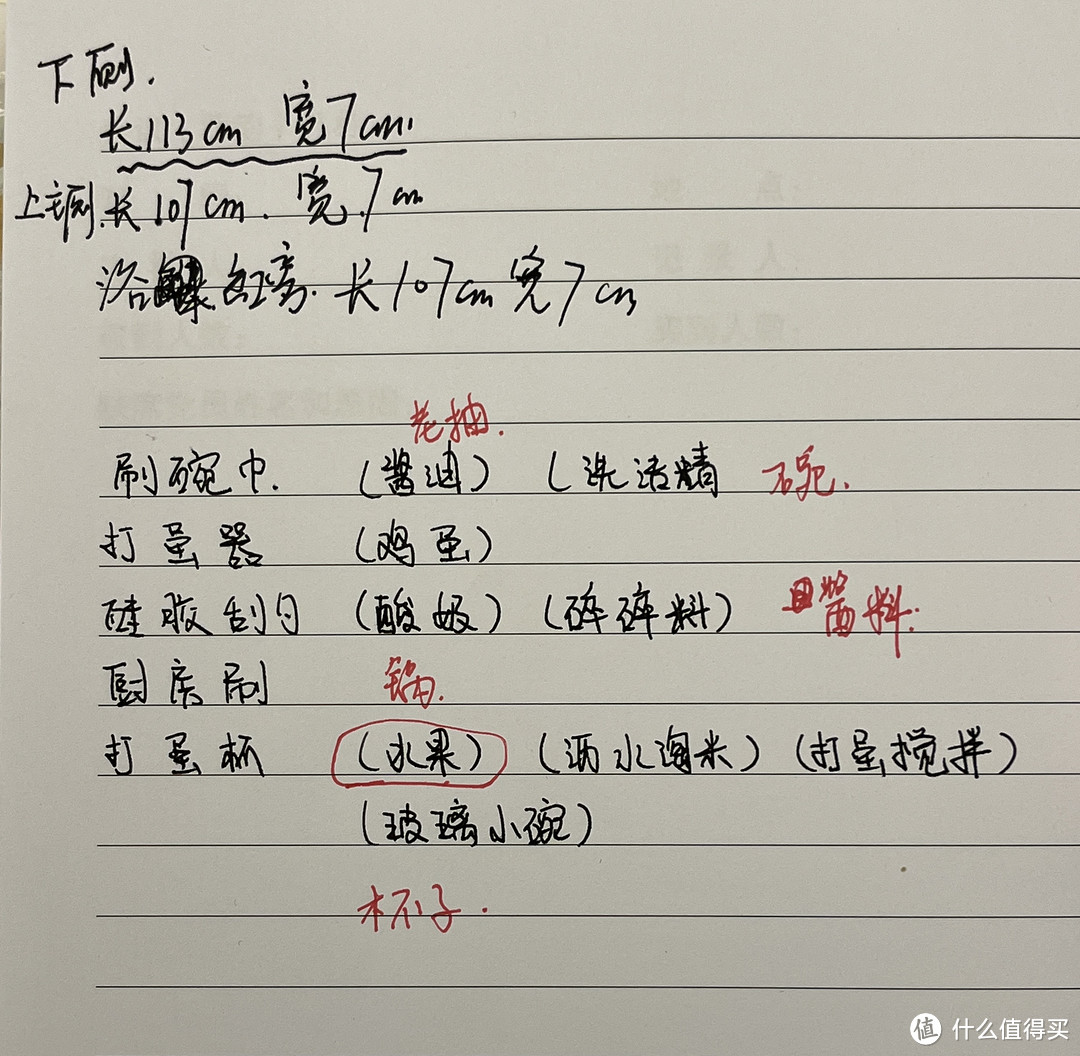 下侧.
长113cm 宽7cm.
上主侧.长107cm.宽.7cm
长107cm 宽7cm
老抽.
刷碗巾. (酱油) (洗洁精 碗.
打蛋器 (鸡蛋)
硅胶刮勺 (酸奶) (碎碎料) 酱料.
厨房刷 锅.
打蛋杯 (水果) (沥水淘米) (打蛋搅拌)
(玻璃小碗)
杯子.
值 什么值得买